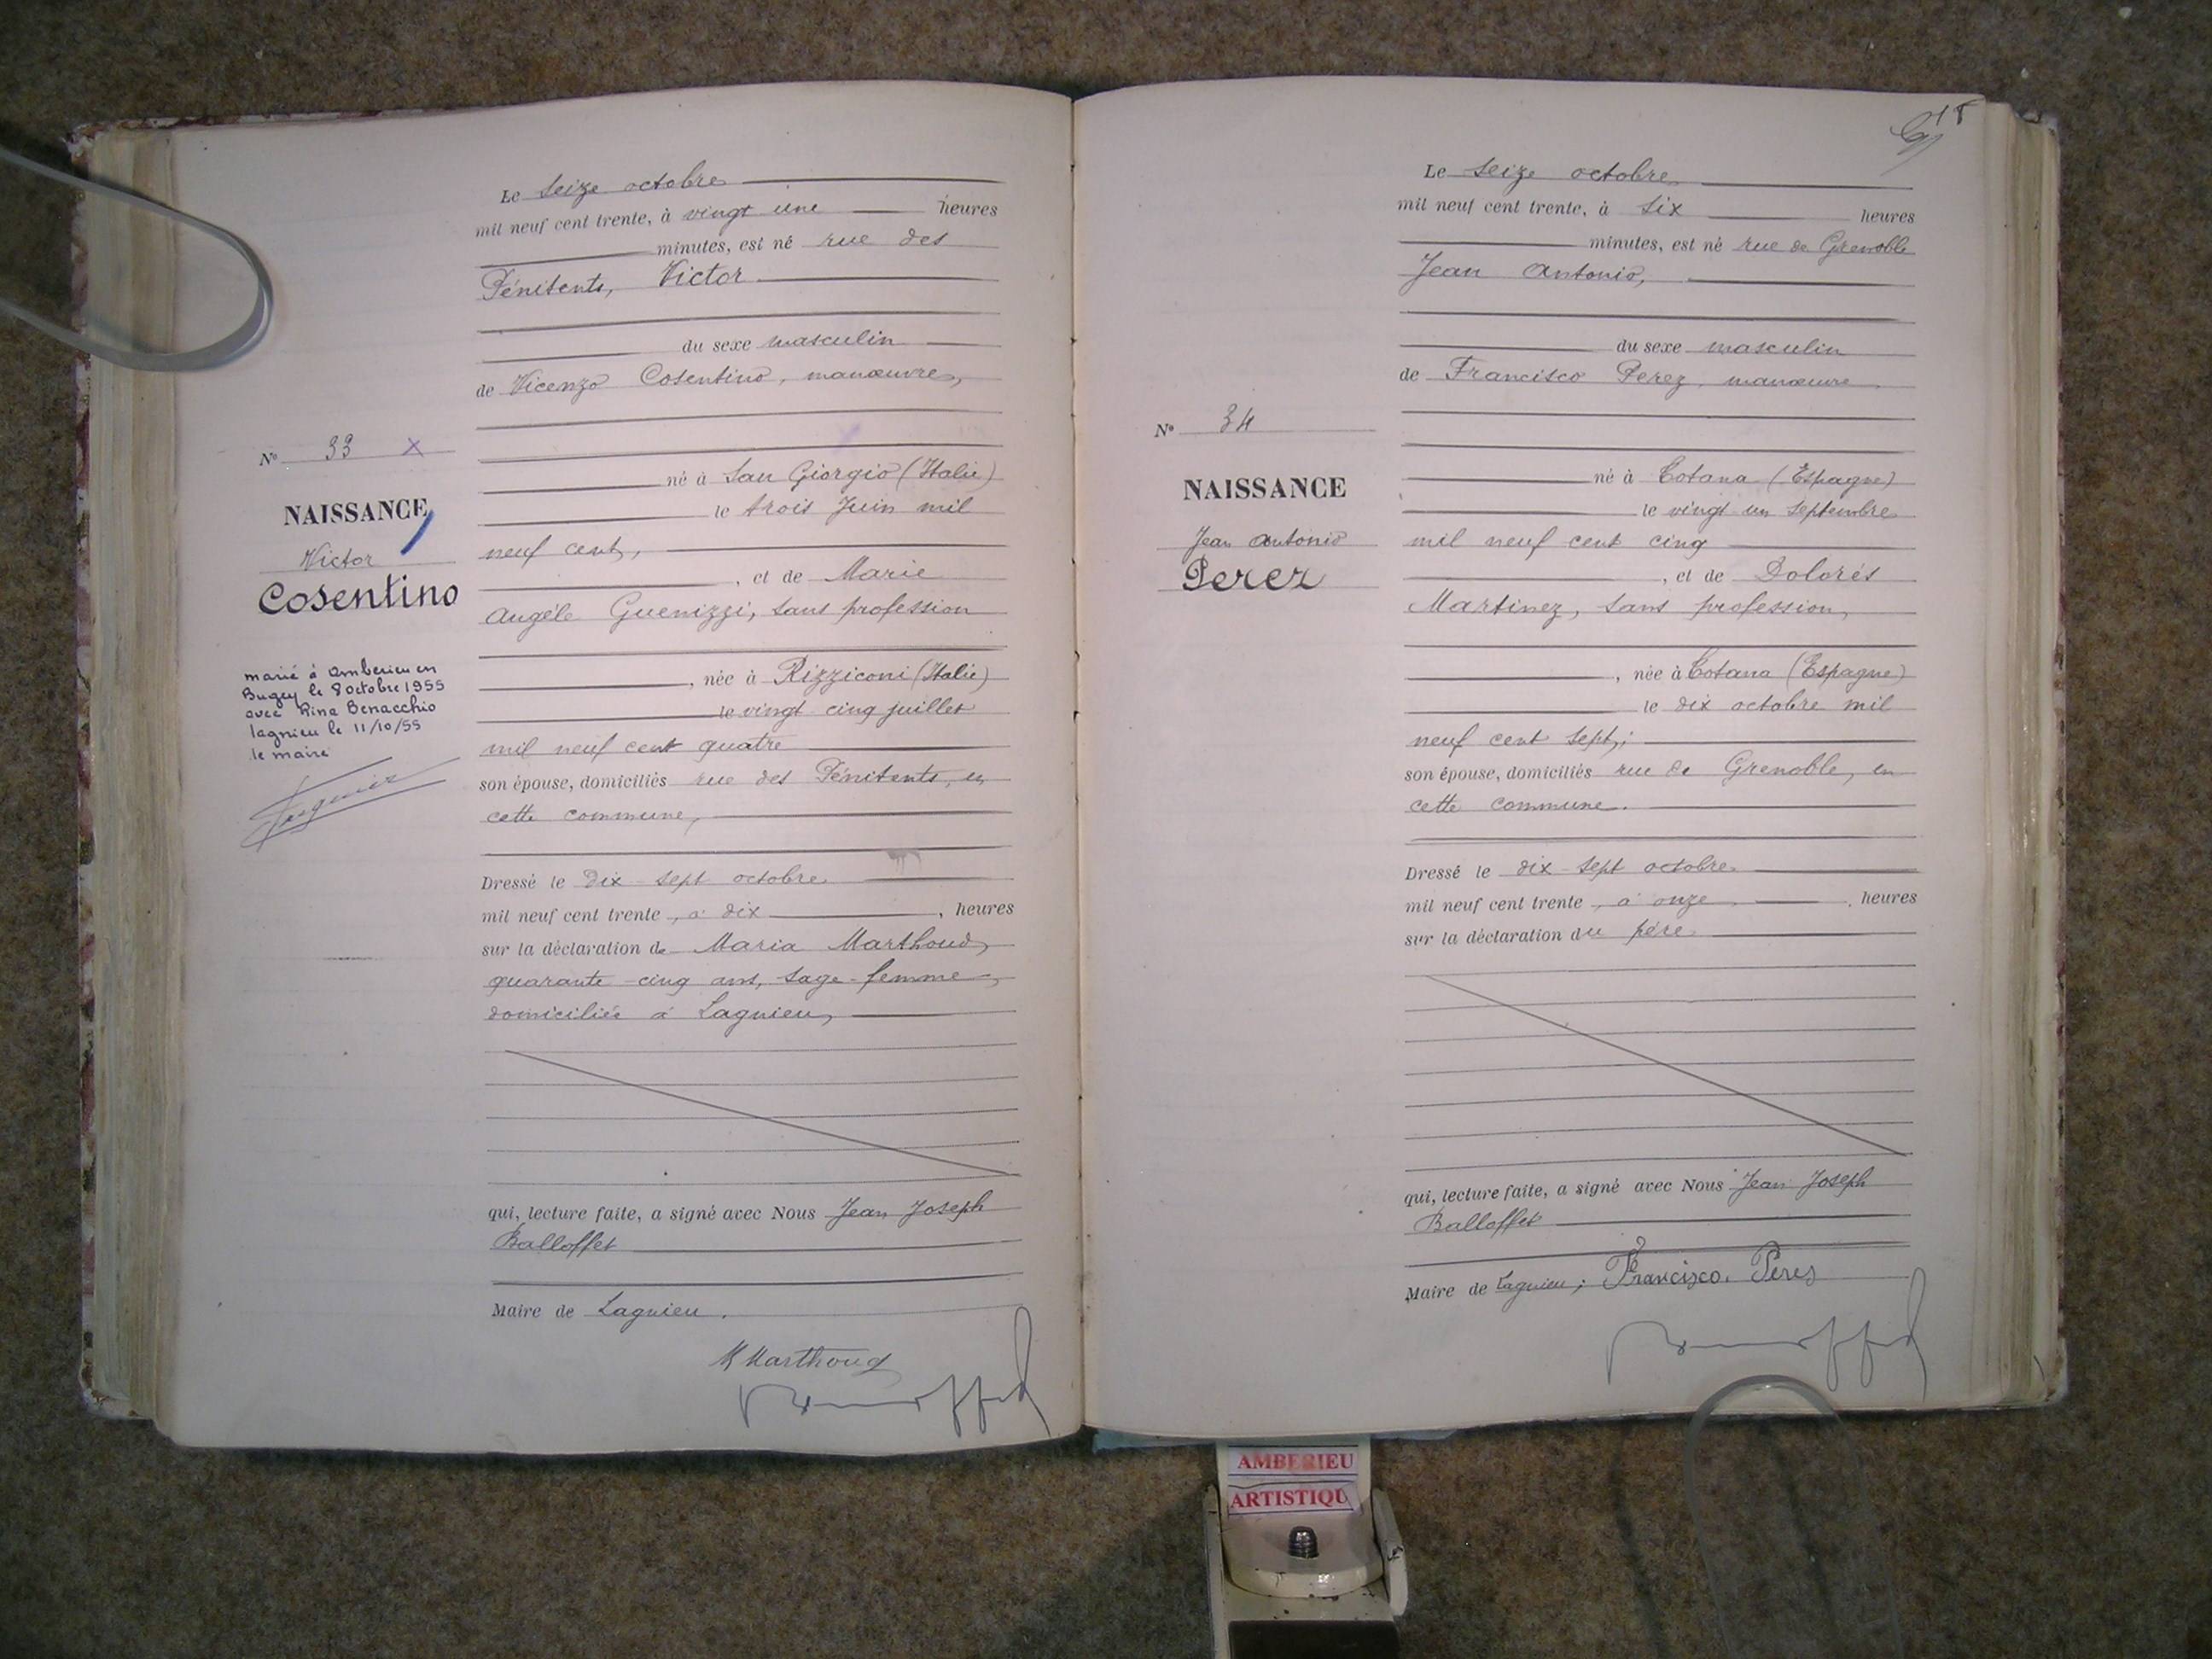 Le seize octobre
mil neuf cent trente, à vingt une heures
minutes, est né rue des
Pénitents, Victor
du sexe masculin
de Vicenzo Cosentino, manœuvre,
né à San Giorgio (Italie)
le trois Juin mil
neuf cent,
, et de Marie
Angèle Guenizzi, sans profession
, née à Rizziconi (Italie)
le vingt cinq juillet
mil neuf cent quatre
son épouse, domiciliés rue des Pénitents, en
cette commune,
Dressé le dix-sept octobre
mil neuf cent trente, à dix, heures
sur la déclaration de Maria Marthoud,
quarante-cinq ans, sage-femme,
domiciliée à Lagnieu,
qui, lecture faite, a signé avec Nous Jean Joseph
Balloffet
Maire de Lagnieu.
M Marthoud
N° 33 X
NAISSANCE
Victor
Cosentino
marié à Amberieu en
Bugey le 8 octobre 1955
avec Rina Benacchio
lagnieu le 11/10/55
le maire
18
Le seize octobre
mil neuf cent trente, à six heures
minutes, est né rue de Grenoble
Jean Antonio,
du sexe masculin
de Francisco Perez, manœuvre,
né à Totana (Espagne)
le vingt un septembre
mil neuf cent cinq
, et de Dolorés
Martinez, sans profession,
, née à Totana (Espagne)
le dix octobre mil
neuf cent sept;
son épouse, domiciliés rue de Grenoble, en
cette commune.
Dressé le dix-sept octobre
mil neuf cent trente, à onze, heures
sur la déclaration du père
qui, lecture faite, a signé avec Nous Jean Joseph
Balloffet
Maire de Lagnieu; Francisco. Peres
N° 34
NAISSANCE
Jean Antonio
Perez
AMBERIEU
ARTISTIQU